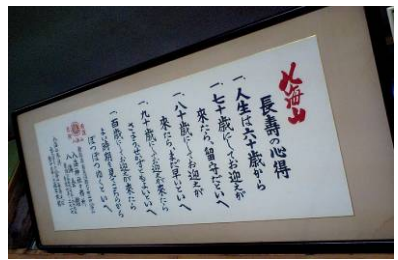 八海山
長壽の心得
一、人生は六十歳から
一、七十歳にしてお迎えが
来たら、留守だといへ
一、八十歳にしてお迎えが
来たら、まだ早いといへ
一、九十歳にしてお迎えが来たら
さう急せかずともよいといへ
一、百歳にしてお迎えが来たら
よい時期を見てこちらから
ぼつぼつ